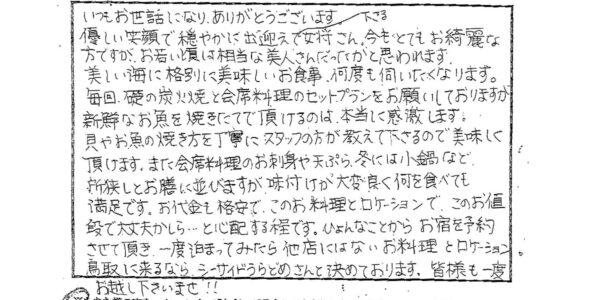 いつもお世話になり、ありがとうございます
優しい笑顔で穏やかに出迎えて下さる女将さん、今もとてもお綺麗な
方ですが、お若い頃は相当な美人さんだったかと思われます。
美しい海に格別に美味しいお食事、何度も伺いたくなります。
毎回、磯の炭火焼と会席料理のセットプランをお願いしておりますが
新鮮なお魚を焼きたてで頂けるのは、本当に感激します。
貝やお魚の焼き方を丁寧にスタッフの方が教えて下さるので美味しく
頂けます。また会席料理のお刺身や天ぷら、冬には小鍋など、
所狭しとお膳に並びますが味付けが大変良く何を食べても
満足です。お代金も格安で、このお料理とロケーションで、このお値
段で大丈夫かしら…と心配する程です。ひょんなことからお宿を予約
させて頂き、一度泊まってみたら他店にはないお料理とロケーション
鳥取に来るなら、シーサイドうらどめさんと決めております。皆様も一度
お越し下さいませ!!